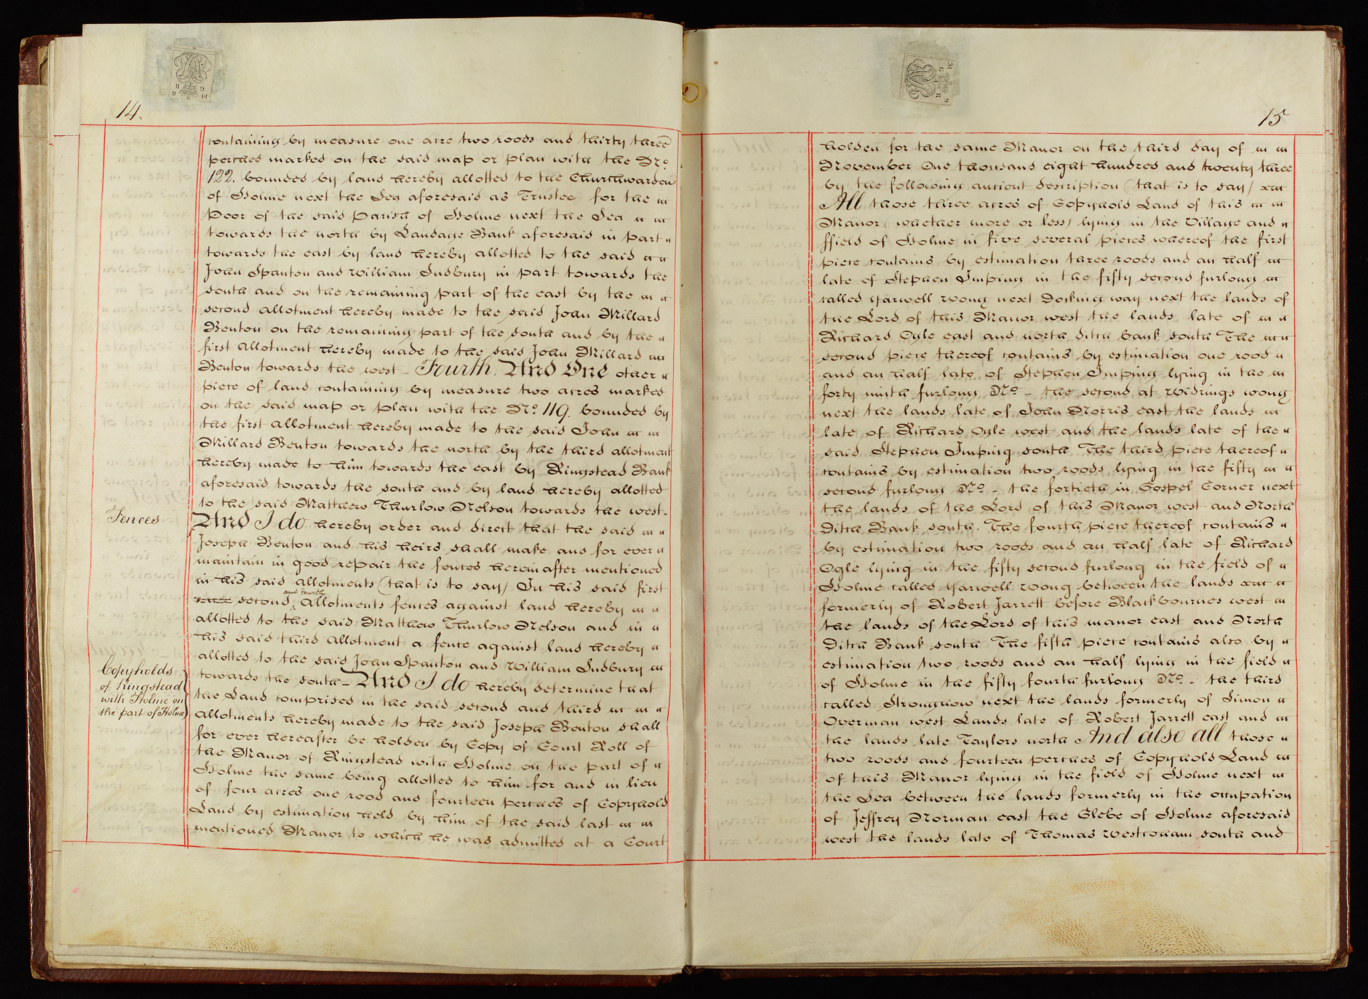 14.
containing by measure one acre two roods and thirty three
perches marked on the said map or plan with the No
122. bounded by land hereby allotted to the Churchwarden
of Holme next the Sea aforesaid as Trustee for the
Poor of the said Parish of Holme next the Sea
towards the north by Landage Bank aforesaid in part
towards the east by land hereby allotted to the said
John Spanton and William Sudbury in part towards the
south and on the remaining part of the east by the
second allotment hereby made to the said John Millard
Benton on the remaining part of the south and by the
first allotment hereby made to the said John Millard
Benton towards the west Fourth. And One other
piece of land containing by measure two acres marked
on the said map or plan with the No 119. bounded by
the first allotment hereby made to the said John
Millard Benton towards the north by the third allotment
hereby made to him towards the east by Ringstead Bank
aforesaid towards the south and by land hereby allotted
to the said Matthew Thurlow Nelson towards the west.
Fences
And I do hereby order and direct that the said
Joseph Benton and his heirs shall make and for ever
maintain in good repair the fences hereinafter mentioned
in his said allotments (that is to say) In his said first
and fourth
second Allotments fences against land hereby
allotted to the said Matthew Thurlow Nelson and in
his said third allotment a fence against land hereby
allotted to the said John Spanton and William Sudbury
towards the south – And I do hereby determine that
Copyholds
of Ringstead
with Holme on
the part of Holme
the Land comprised in the said second and third
allotments hereby made to the said Joseph Benton shall
for ever hereafter be holden by Copy of Court Roll of
the Manor of Ringstead with Holme on the part of
Holme the same being allotted to him for and in lieu
of four acres one rood and fourteen perches of Copyhold
Land by estimation held by him of the said last
mentioned Manor to which he was admitted at a Court
15
holden for the same Manor on the third day of
November One thousand eight hundred and twenty three
by the following ancient description (that is to say)
All those three acres of Copyhold Land of this
Manor (whether more or less) lying in the Village and
ffield of Holme in five several pieces whereof the first
piece contains by estimation three roods and an half
late of Stephen Imping in the fifty second furlong
called Yarwell wong next Docking way next the lands of
the Lord of this Manor west the lands late of
Richard Ogle east and north ditch bank south The
second piece thereof contains by estimation one rood
and an half late of Stephen Imping lying in the
forty ninth furlong No – the second at Widrings wong
next the lands late of John Norris east the lands
late of Richard Ogle west and the lands late of the
said Stephen Imping south. The third piece thereof
contains by estimation two roods lying in the fifty
second furlong No – the fortieth in Gospel Corner next
the lands of the Lord of this Manor west and North
Ditch Bank south. The fourth piece thereof contains
by estimation two roods and an half late of Richard
Ogle lying in the fifty second furlong in the field of
Holme called Yarwell wong between the lands
formerly of Robert Jarrett before Blackbournes west
the lands of the Lord of this manor east and North
Ditch Bank south The fifth piece contains also by
estimation two roods and an half lying in the field
of Holme in the fifty fourth furlong No – the third
called Stronghow next the lands formerly of Simon
Overman west Lands late of Robert Jarrett east and
the lands late Taylors north And also all those
two roods and fourteen perches of Copyhold Land
of this Manor lying in the field of Holme next
the Sea between the lands formerly in the occupation
of Jeffrey Norman east the Glebe of Holme aforesaid
west the lands late of Thomas Westrowam south and